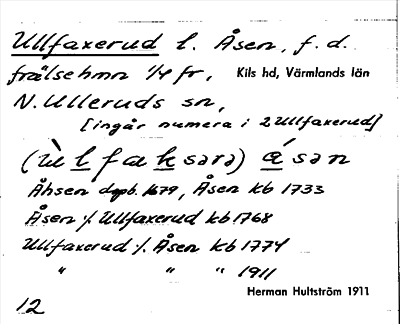 Ullfaxerud l. Åsen, f.d.
frälsehmn 1/4 fr, Kils hd, Värmlands län
N. Ulleruds sn,
[ingår numera i 2 Ullfaxerud]
(ùl faksərə) ásən
Åhsen dgpb. 1679, Åsen kb 1733
Åsen /. Ullfaxerud kb 1768
Ullfaxerud /. Åsen kb 1774
" " " 1911
Herman Hultström 1911
12